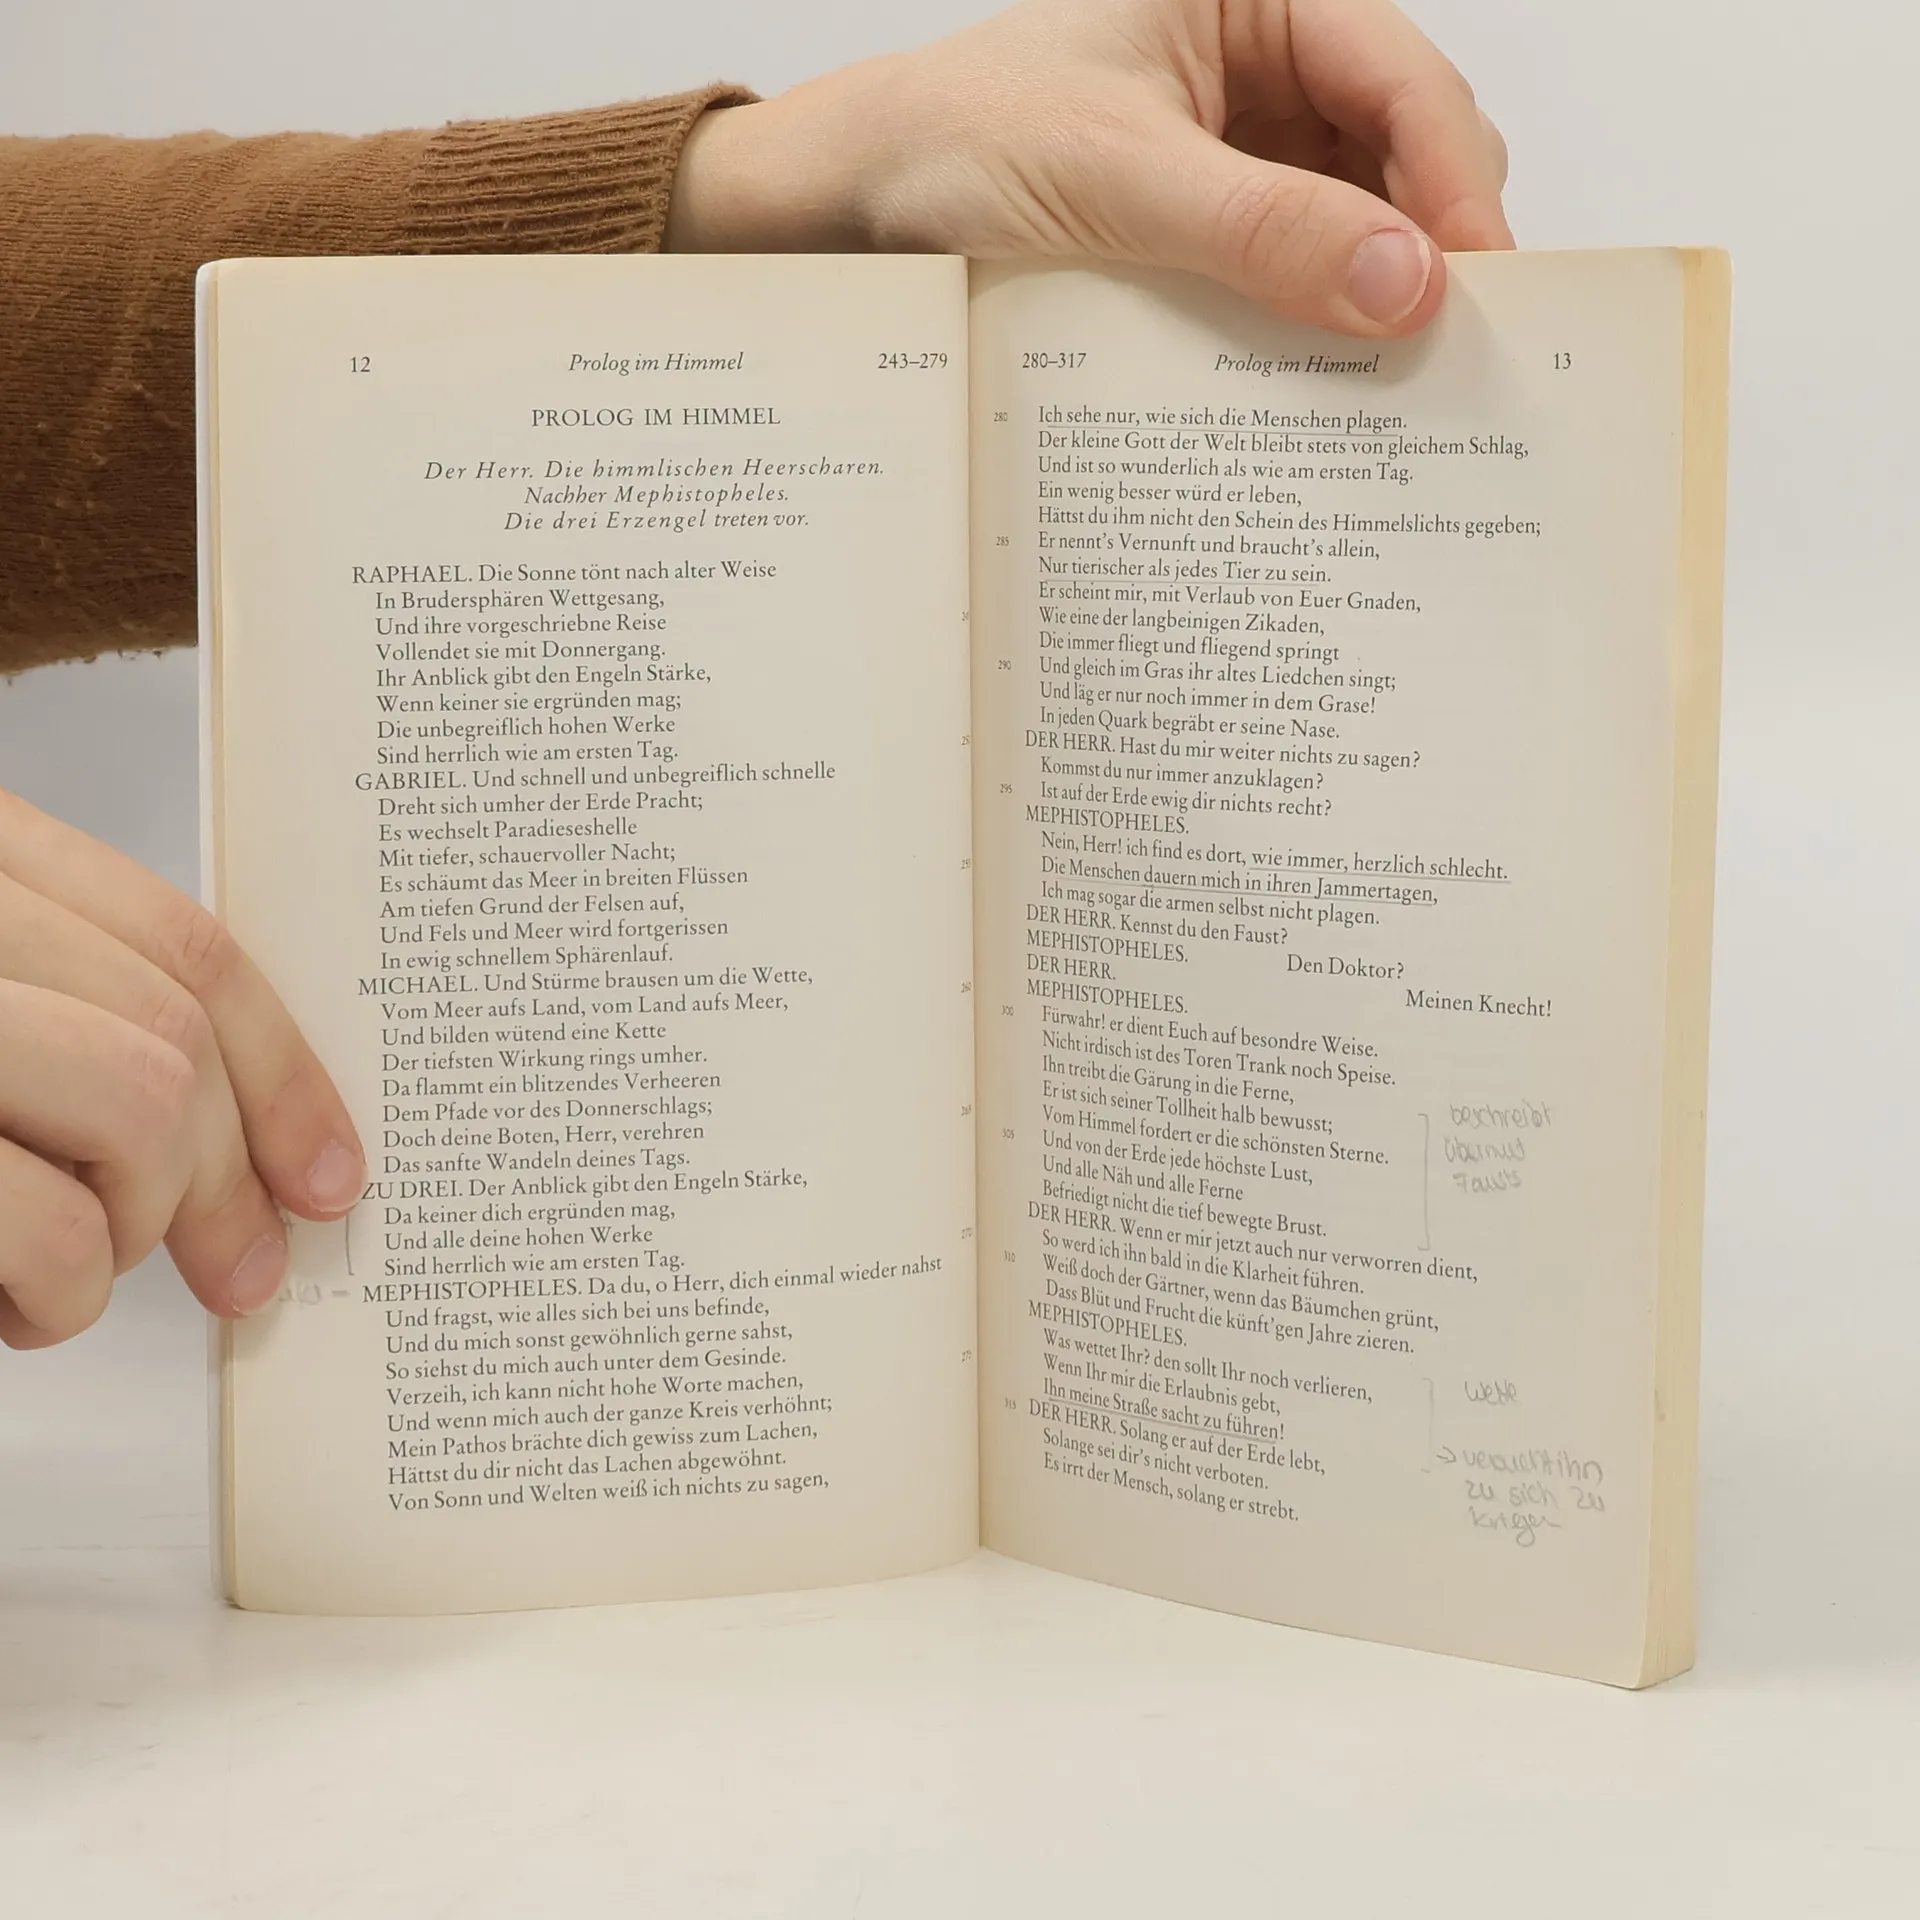 12 Prolog im Himmel 243–279
PROLOG IM HIMMEL
Der Herr. Die himmlischen Heerscharen.
Nachher Mephistopheles.
Die drei Erzengel treten vor.
RAPHAEL. Die Sonne tönt nach alter Weise
In Brudersphären Wettgesang,
Und ihre vorgeschriebne Reise
Vollendet sie mit Donnergang.
Ihr Anblick gibt den Engeln Stärke,
Wenn keiner sie ergründen mag;
Die unbegreiflich hohen Werke
Sind herrlich wie am ersten Tag.
GABRIEL. Und schnell und unbegreiflich schnelle
Dreht sich umher der Erde Pracht;
Es wechselt Paradieseshelle
Mit tiefer, schauervoller Nacht;
Es schäumt das Meer in breiten Flüssen
Am tiefen Grund der Felsen auf,
Und Fels und Meer wird fortgerissen
In ewig schnellem Sphärenlauf.
MICHAEL. Und Stürme brausen um die Wette,
Vom Meer aufs Land, vom Land aufs Meer,
Und bilden wütend eine Kette
Der tiefsten Wirkung rings umher.
Da flammt ein blitzendes Verheeren
Dem Pfade vor des Donnerschlags;
Doch deine Boten, Herr, verehren
Das sanfte Wandeln deines Tags.
ZU DREI. Der Anblick gibt den Engeln Stärke,
Da keiner dich ergründen mag,
Und alle deine hohen Werke
Sind herrlich wie am ersten Tag.
MEPHISTOPHELES. Da du, o Herr, dich einmal wieder nahst
Und fragst, wie alles sich bei uns befinde,
Und du mich sonst gewöhnlich gerne sahst,
So siehst du mich auch unter dem Gesinde.
Verzeih, ich kann nicht hohe Worte machen,
Und wenn mich auch der ganze Kreis verhöhnt;
Mein Pathos brächte dich gewiss zum Lachen,
Hättst du dir nicht das Lachen abgewöhnt.
Von Sonn und Welten weiß ich nichts zu sagen,
280–317 Prolog im Himmel 13
280 Ich sehe nur, wie sich die Menschen plagen.
Der kleine Gott der Welt bleibt stets von gleichem Schlag,
Und ist so wunderlich als wie am ersten Tag.
Ein wenig besser würd er leben,
Hättst du ihm nicht den Schein des Himmelslichts gegeben;
285 Er nennt's Vernunft und braucht's allein,
Nur tierischer als jedes Tier zu sein.
Er scheint mir, mit Verlaub von Euer Gnaden,
Wie eine der langbeinigen Zikaden,
Die immer fliegt und fliegend springt
290 Und gleich im Gras ihr altes Liedchen singt;
Und läg er nur noch immer in dem Grase!
In jeden Quark begräbt er seine Nase.
DER HERR. Hast du mir weiter nichts zu sagen?
Kommst du nur immer anzuklagen?
295 Ist auf der Erde ewig dir nichts recht?
MEPHISTOPHELES.
Nein, Herr! ich find es dort, wie immer, herzlich schlecht.
Die Menschen dauern mich in ihren Jammertagen,
Ich mag sogar die armen selbst nicht plagen.
DER HERR. Kennst du den Faust?
MEPHISTOPHELES. Den Doktor?
DER HERR. Meinen Knecht!
MEPHISTOPHELES.
300 Fürwahr! er dient Euch auf besondre Weise.
Nicht irdisch ist des Toren Trank noch Speise.
Ihn treibt die Gärung in die Ferne,
Er ist sich seiner Tollheit halb bewusst;
Vom Himmel fordert er die schönsten Sterne.
305 Und von der Erde jede höchste Lust,
Und alle Näh und alle Ferne
Befriedigt nicht die tief bewegte Brust.
beschreibt
Übermut
Fausts
DER HERR. Wenn er mir jetzt auch nur verworren dient,
So werd ich ihn bald in die Klarheit führen.
310 Weiß doch der Gärtner, wenn das Bäumchen grünt,
Dass Blüt und Frucht die künft'gen Jahre zieren.
MEPHISTOPHELES.
Was wettet Ihr? den sollt Ihr noch verlieren,
Wenn Ihr mir die Erlaubnis gebt,
Ihn meine Straße sacht zu führen!
315 DER HERR. Solang er auf der Erde lebt,
Solange sei dir's nicht verboten.
Es irrt der Mensch, solang er strebt.
Wette
→ versucht ihn
zu sich zu
kriegen